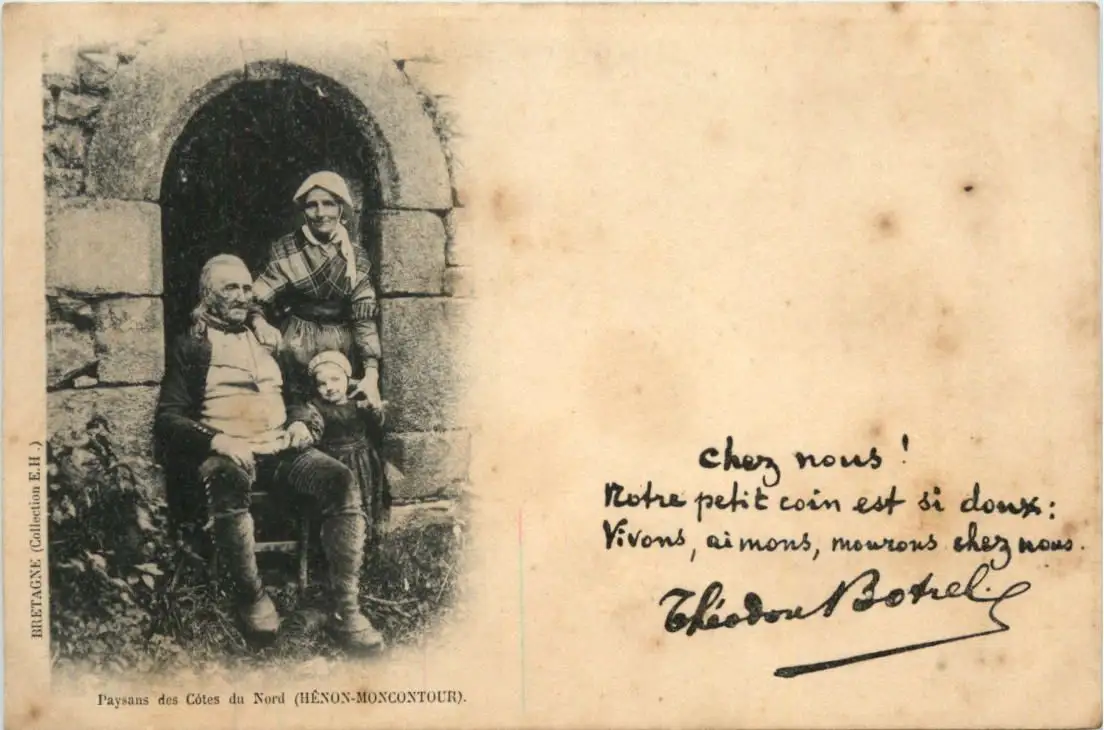 BRETAGNE (Collection E.H.)
chez nous !
Notre petit coin est si doux :
Vivons, aimons, mourons chez nous.
Théodore Botrel
Paysans des Côtes du Nord (HÉNON-MONCONTOUR).